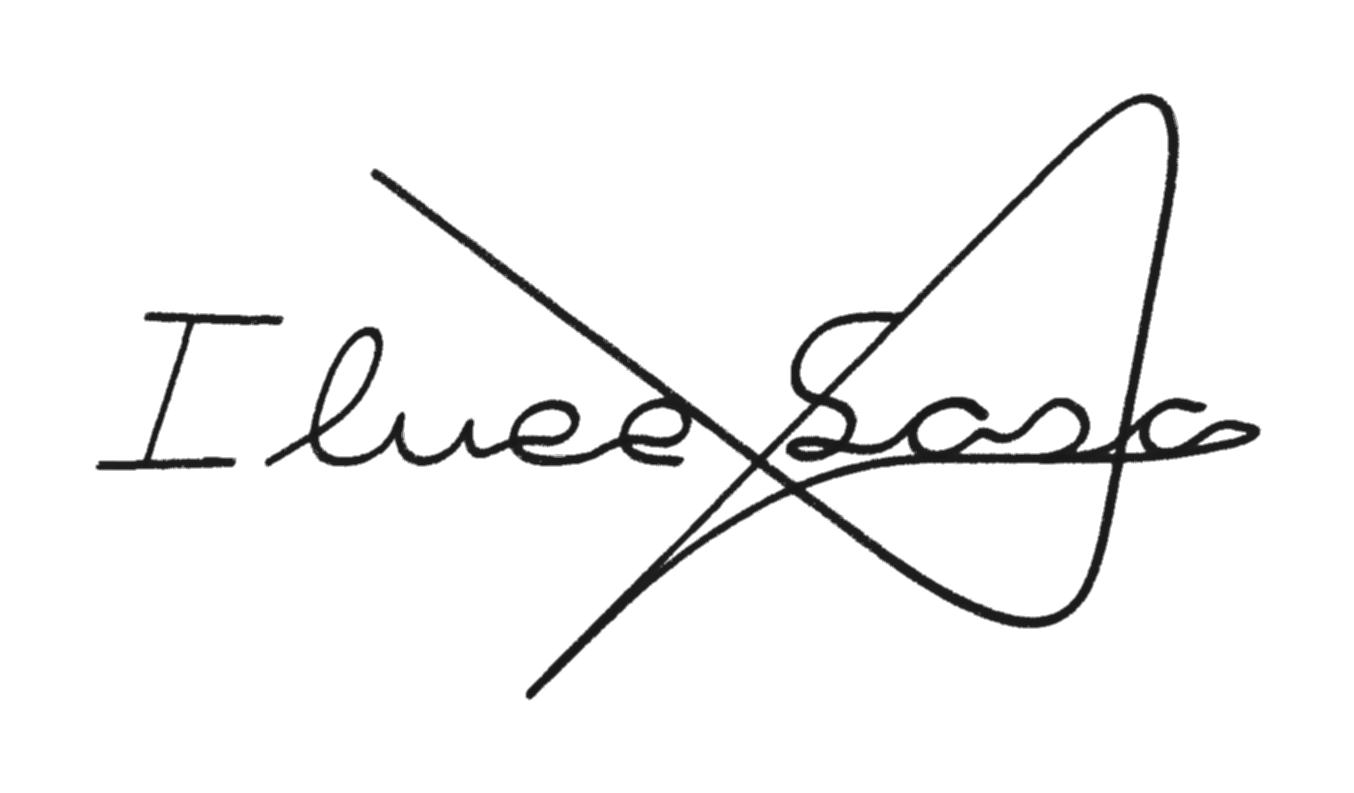 Iluee Sasa